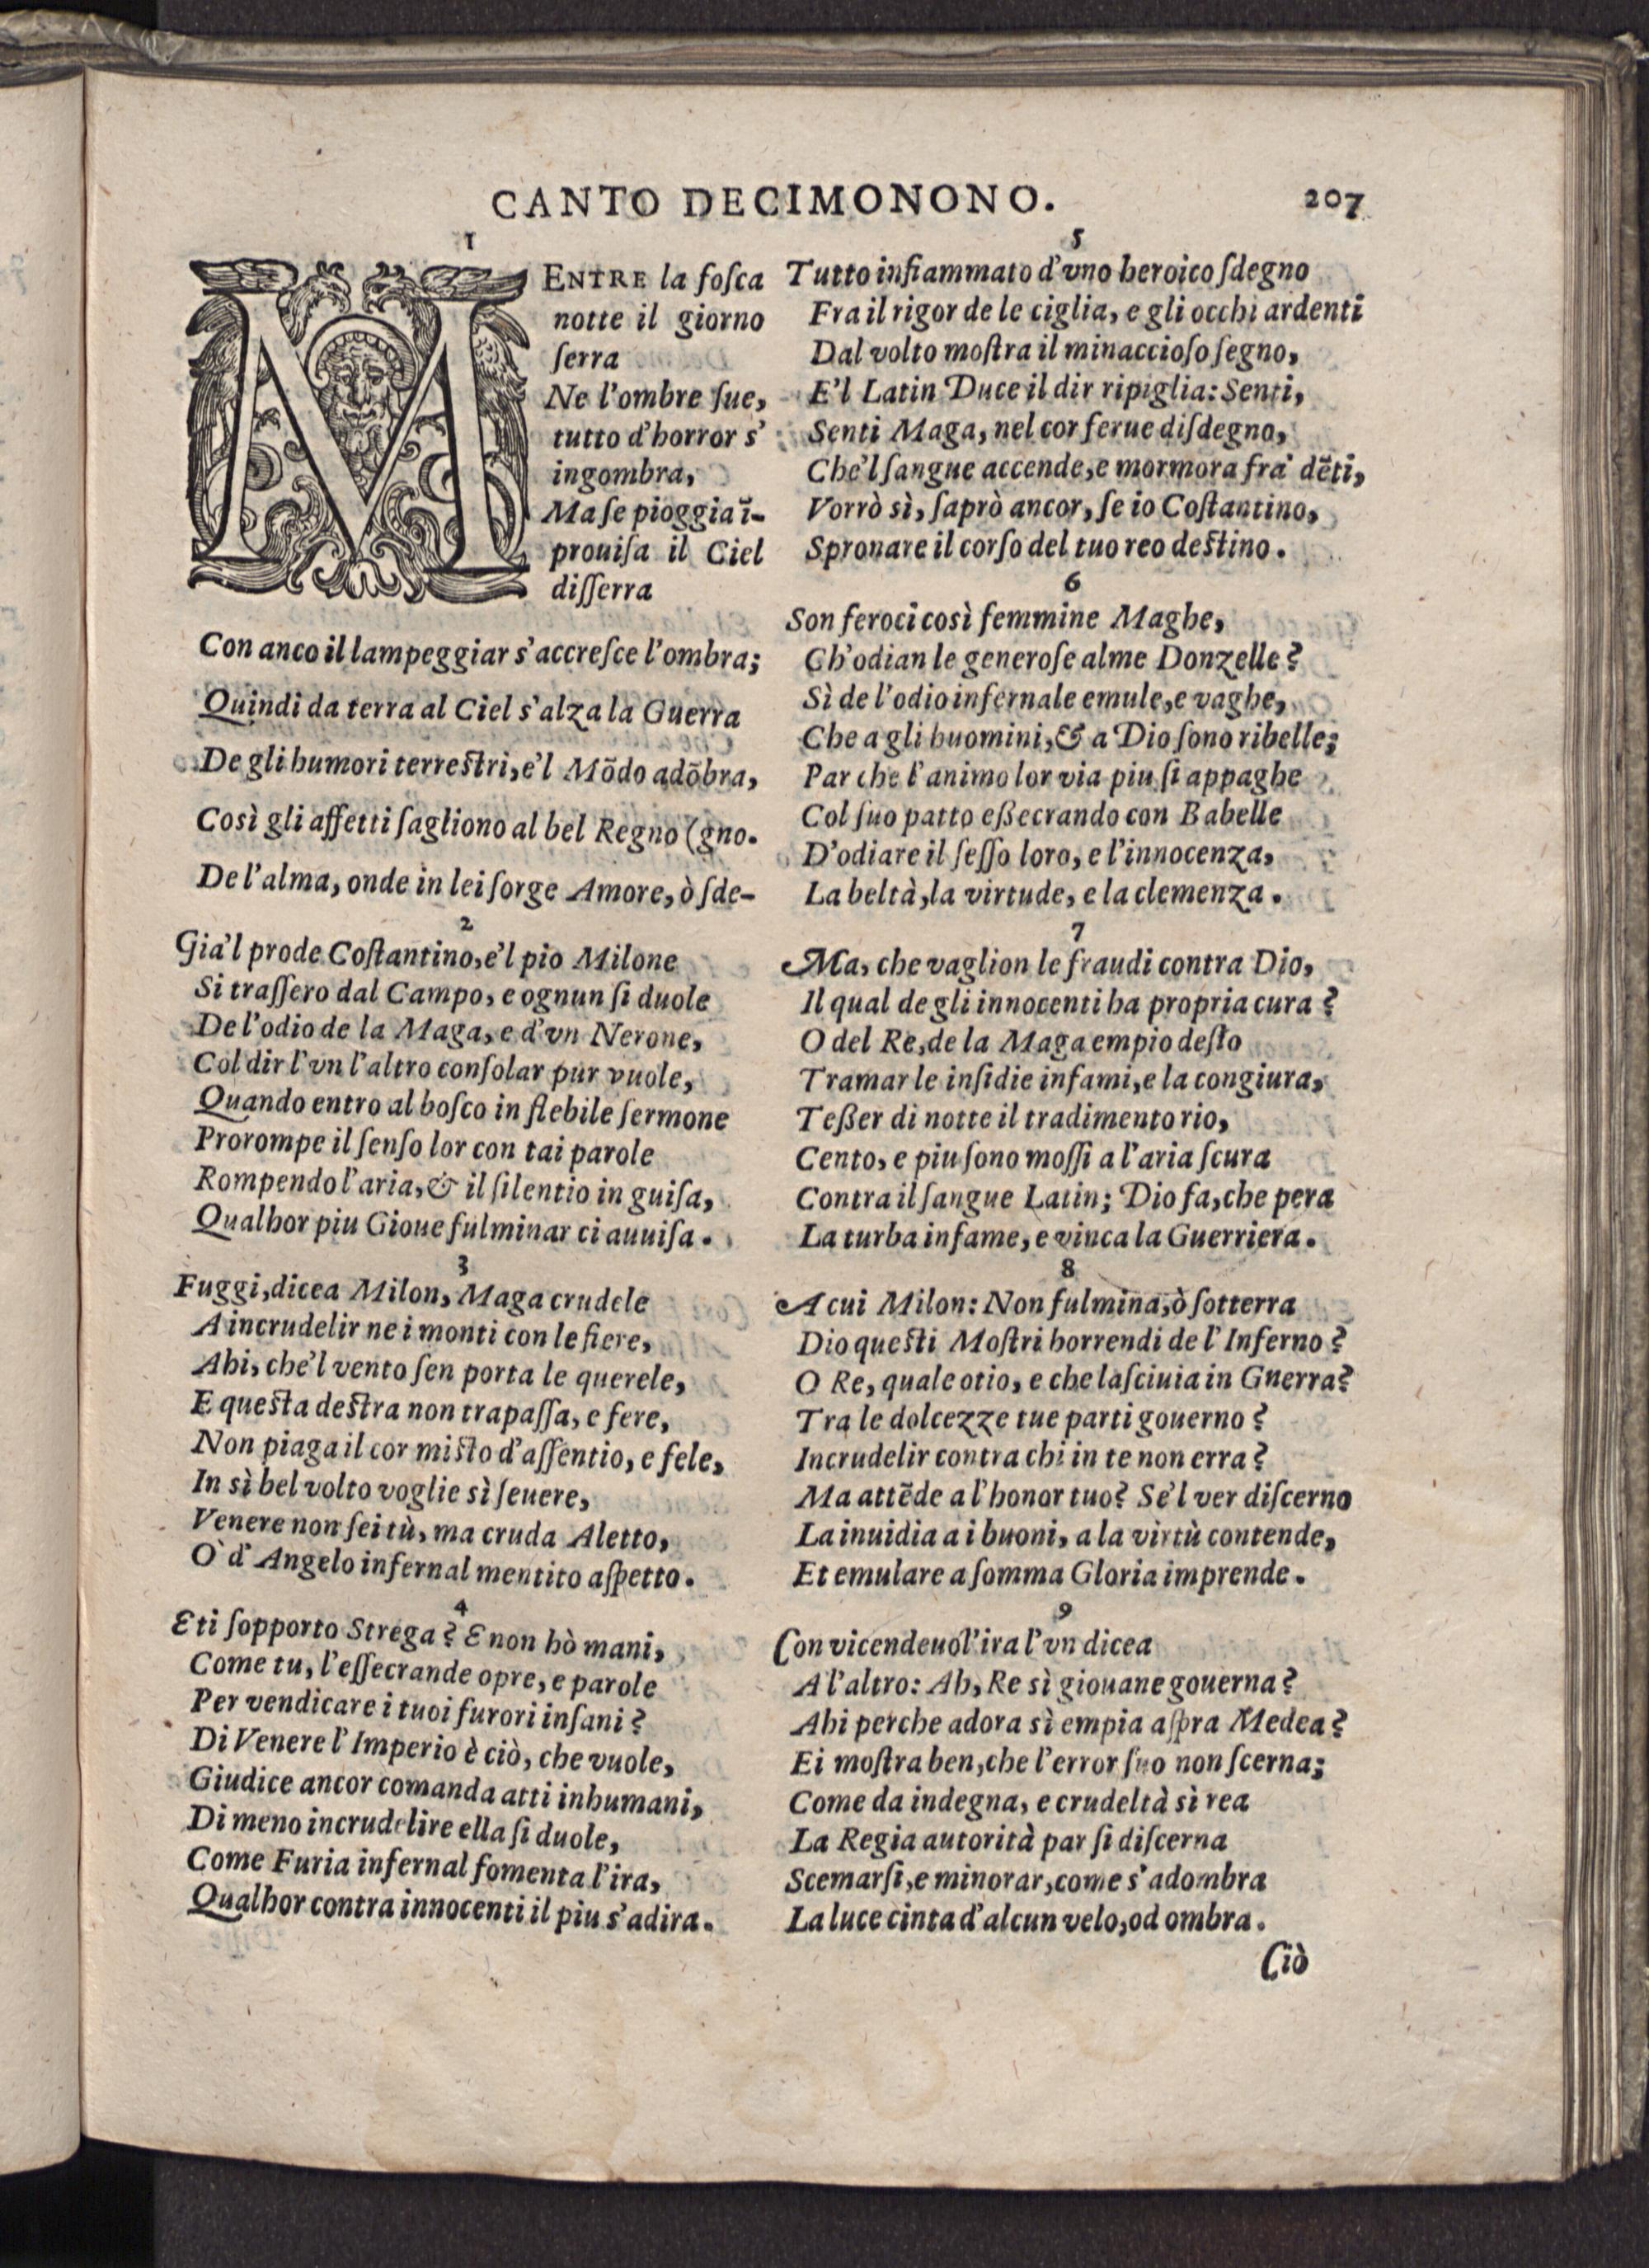 CANTO DECIMONONO. 207
1
MENTRE la foſca
notte il giorno
ſerra
Ne l'ombre ſue,
tutto d'horror s'
ingombra,
Ma ſe pioggia ĩ-
prouiſa il Ciel
diſſerra
Con anco il lampeggiar s'accreſce l'ombra;
Quindi da terra al Ciel s'alza la Guerra
De gli humori terreſtri, e'l Mõdo adõbra,
Così gli affetti ſagliono al bel Regno (gno.
De l'alma, onde in lei ſorge Amore, ò ſde-
2
Gia'l prode Coſtantino, e'l pio Milone
Si traſſero dal Campo, e ognun ſi duole
De l'odio de la Maga, e d'vn Nerone,
Col dir l'vn l'altro conſolar pur vuole,
Quando entro al boſco in flebile ſermone
Prorompe il ſenſo lor con tai parole
Rompendo l'aria, & il ſilentio in guiſa,
Qualhor piu Gioue fulminar ci auuiſa.
3
Fuggi, dicea Milon, Maga crudele
A incrudelir ne i monti con le fiere,
Ahi, che'l vento ſen porta le querele,
E queſta deſtra non trapaſſa, e fere,
Non piaga il cor miſto d'aſſentio, e fele,
In sì bel volto voglie sì ſeuere,
Venere non ſei tù, ma cruda Aletto,
O' d'Angelo infernal mentito aſpetto.
4
E ti ſopporto Strega? E non hò mani,
Come tu, l'eſſecrande opre, e parole
Per vendicare i tuoi furori inſani?
Di Venere l'Imperio è ciò, che vuole,
Giudice ancor comanda atti inhumani,
Di meno incrudelire ella ſi duole,
Come Furia infernal fomenta l'ira,
Qualhor contra innocenti il piu s'adira.
5
Tutto infiammato d'vno heroico ſdegno
Fra il rigor de le ciglia, e gli occhi ardenti
Dal volto moſtra il minaccioſo ſegno,
E'l Latin Duce il dir ripiglia: Senti,
Senti Maga, nel cor ferue diſdegno,
Che'l ſangue accende, e mormora fra' dẽti,
Vorrò sì, ſaprò ancor, ſe io Coſtantino,
Spronare il corſo del tuo reo deſtino.
6
Son feroci così femmine Maghe,
Ch'odian le generoſe alme Donzelle?
Sì de l'odio infernale emule, e vaghe,
Che a gli huomini, & a Dio ſono ribelle;
Par che l'animo lor via piu ſi appaghe
Col ſuo patto eßecrando con Babelle
D'odiare il ſeſſo loro, e l'innocenza,
La beltà, la virtude, e la clemenza.
7
Ma, che vaglion le fraudi contra Dio,
Il qual de gli innocenti ha propria cura?
O del Re, de la Maga empio deſio
Tramar le inſidie infami, e la congiura,
Teßer di notte il tradimento rio,
Cento, e piu ſono moſſi a l'aria ſcura
Contra il ſangue Latin; Dio fa, che pera
La turba infame, e vinca la Guerriera.
8
A cui Milon: Non fulmina, ò ſotterra
Dio queſti Moſtri horrendi de l'Inferno?
O Re, quale otio, e che laſciuia in Guerra?
Tra le dolcezze tue parti gouerno?
Incrudelir contra chi in te non erra?
Ma attẽde a l'honor tuo? Se'l ver diſcerno
La inuidia a i buoni, a la virtù contende,
Et emulare a ſomma Gloria imprende.
9
Con vicendeuol'ira l'vn dicea
A l'altro: Ah, Re sì giouane gouerna?
Ahi perche adora sì empia aſpra Medea?
Ei moſtra ben, che l'error ſuo non ſcerna;
Come da indegna, e crudeltà sì rea
La Regia autorità par ſi diſcerna
Scemarſi, e minorar, come s'adombra
La luce cinta d'alcun velo, od ombra.
Ciò